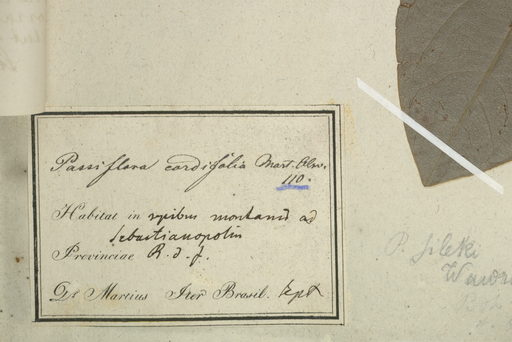 Passiflora cordifolia Mart. Obs.
110.
Habitat in sepibus montanis ad
Sebastianopolin
Provinciae R. d. J.
Dr Martius Iter Brasil. Sept
P. sileki
Wawra